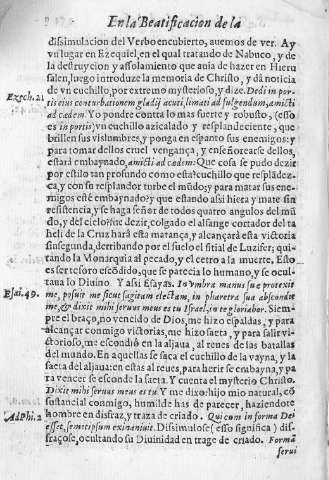 En la Beatificacion de la
dissimulacion del Verbo encubierto, auemos de ver. Ay
vn lugar en Ezequiel, en el qual tratando de Nabuco, y de
la destruycion y assolamiento que auia de hazer en Hieru
salen, luego introduze la memoria de Christo, y dà noticia
Ezech. 21
de vn cuchillo, por extremo mysterioso, y dize. Dedi in por-
tis eius conturbationem gladij acuti, limati ad fulgendum, amicti
ad cædem. Yo pondre contra lo mas fuerte y robusto, (esso
es in portis) vn cuchillo azicalado y resplandeciente, que
brillen sus vislumbres, y ponga en espanto sus enemigos: y
para tomar dellos cruel vengança, y enseñorearse dellos,
estará embaynado, amicti ad cædem: Que cosa se pudo dezir
por estilo tan profundo como esta? cuchillo que resplãdez-
ca, y con su resplandor turbe el mũdo; y para matar sus ene-
migos esté embaynado? y que estando assi hiera y mate sin
resistencia, y se haga señor de todos quatro angulos del mũ
do, y del cielo? fue dezir, colgado el alfange cortador del ta
heli de la Cruz hará esta matança, y alcançará esta victoria
sin segunda, derribando por el suelo el sitial de Luzifer; qui-
tando la Monarquia al pecado, y el cetro a la muerte. Esto
es ser tesoro escõdido, que se parecia lo humano, y se ocul-
taua lo Diuino. Y assi Esayas. In vmbra manus suæ protexit
Esai. 49.
me, posuit me sicut sagitam electam, in pharetra sua abscondit
me, & dixit mihi seruus meus es tu Israel, in te gloriabor. Siem-
pre el braço, no vencido de Dios, me hizo espaldas, y para
alcançar conmigo victorias, me hizo saeta, y para salir vi-
ctorioso, me escondió en la aljaua, al reues de las batallas
del mundo. En aquellas se saca el cuchillo de la vayna, y la
saeta del aljaua: en estas al reues, para herir se embayna, y pa
ra vencer se esconde la saeta. Y cuenta el mysterio Christo.
Dixit mihi seruus meus es tu Y me dixo: hijo mio natural, cõ
sustancial conmigo, humilde has de parecer, haziendote
Ad Phi. 2
hombre en disfraz, y traza de criado. Qui cum in forma Dei
esset, semetipsum exinaniuit. Dissimulose (esso significa) dis-
fraçose, ocultando su Diuinidad en trage de criado. Formã
serui